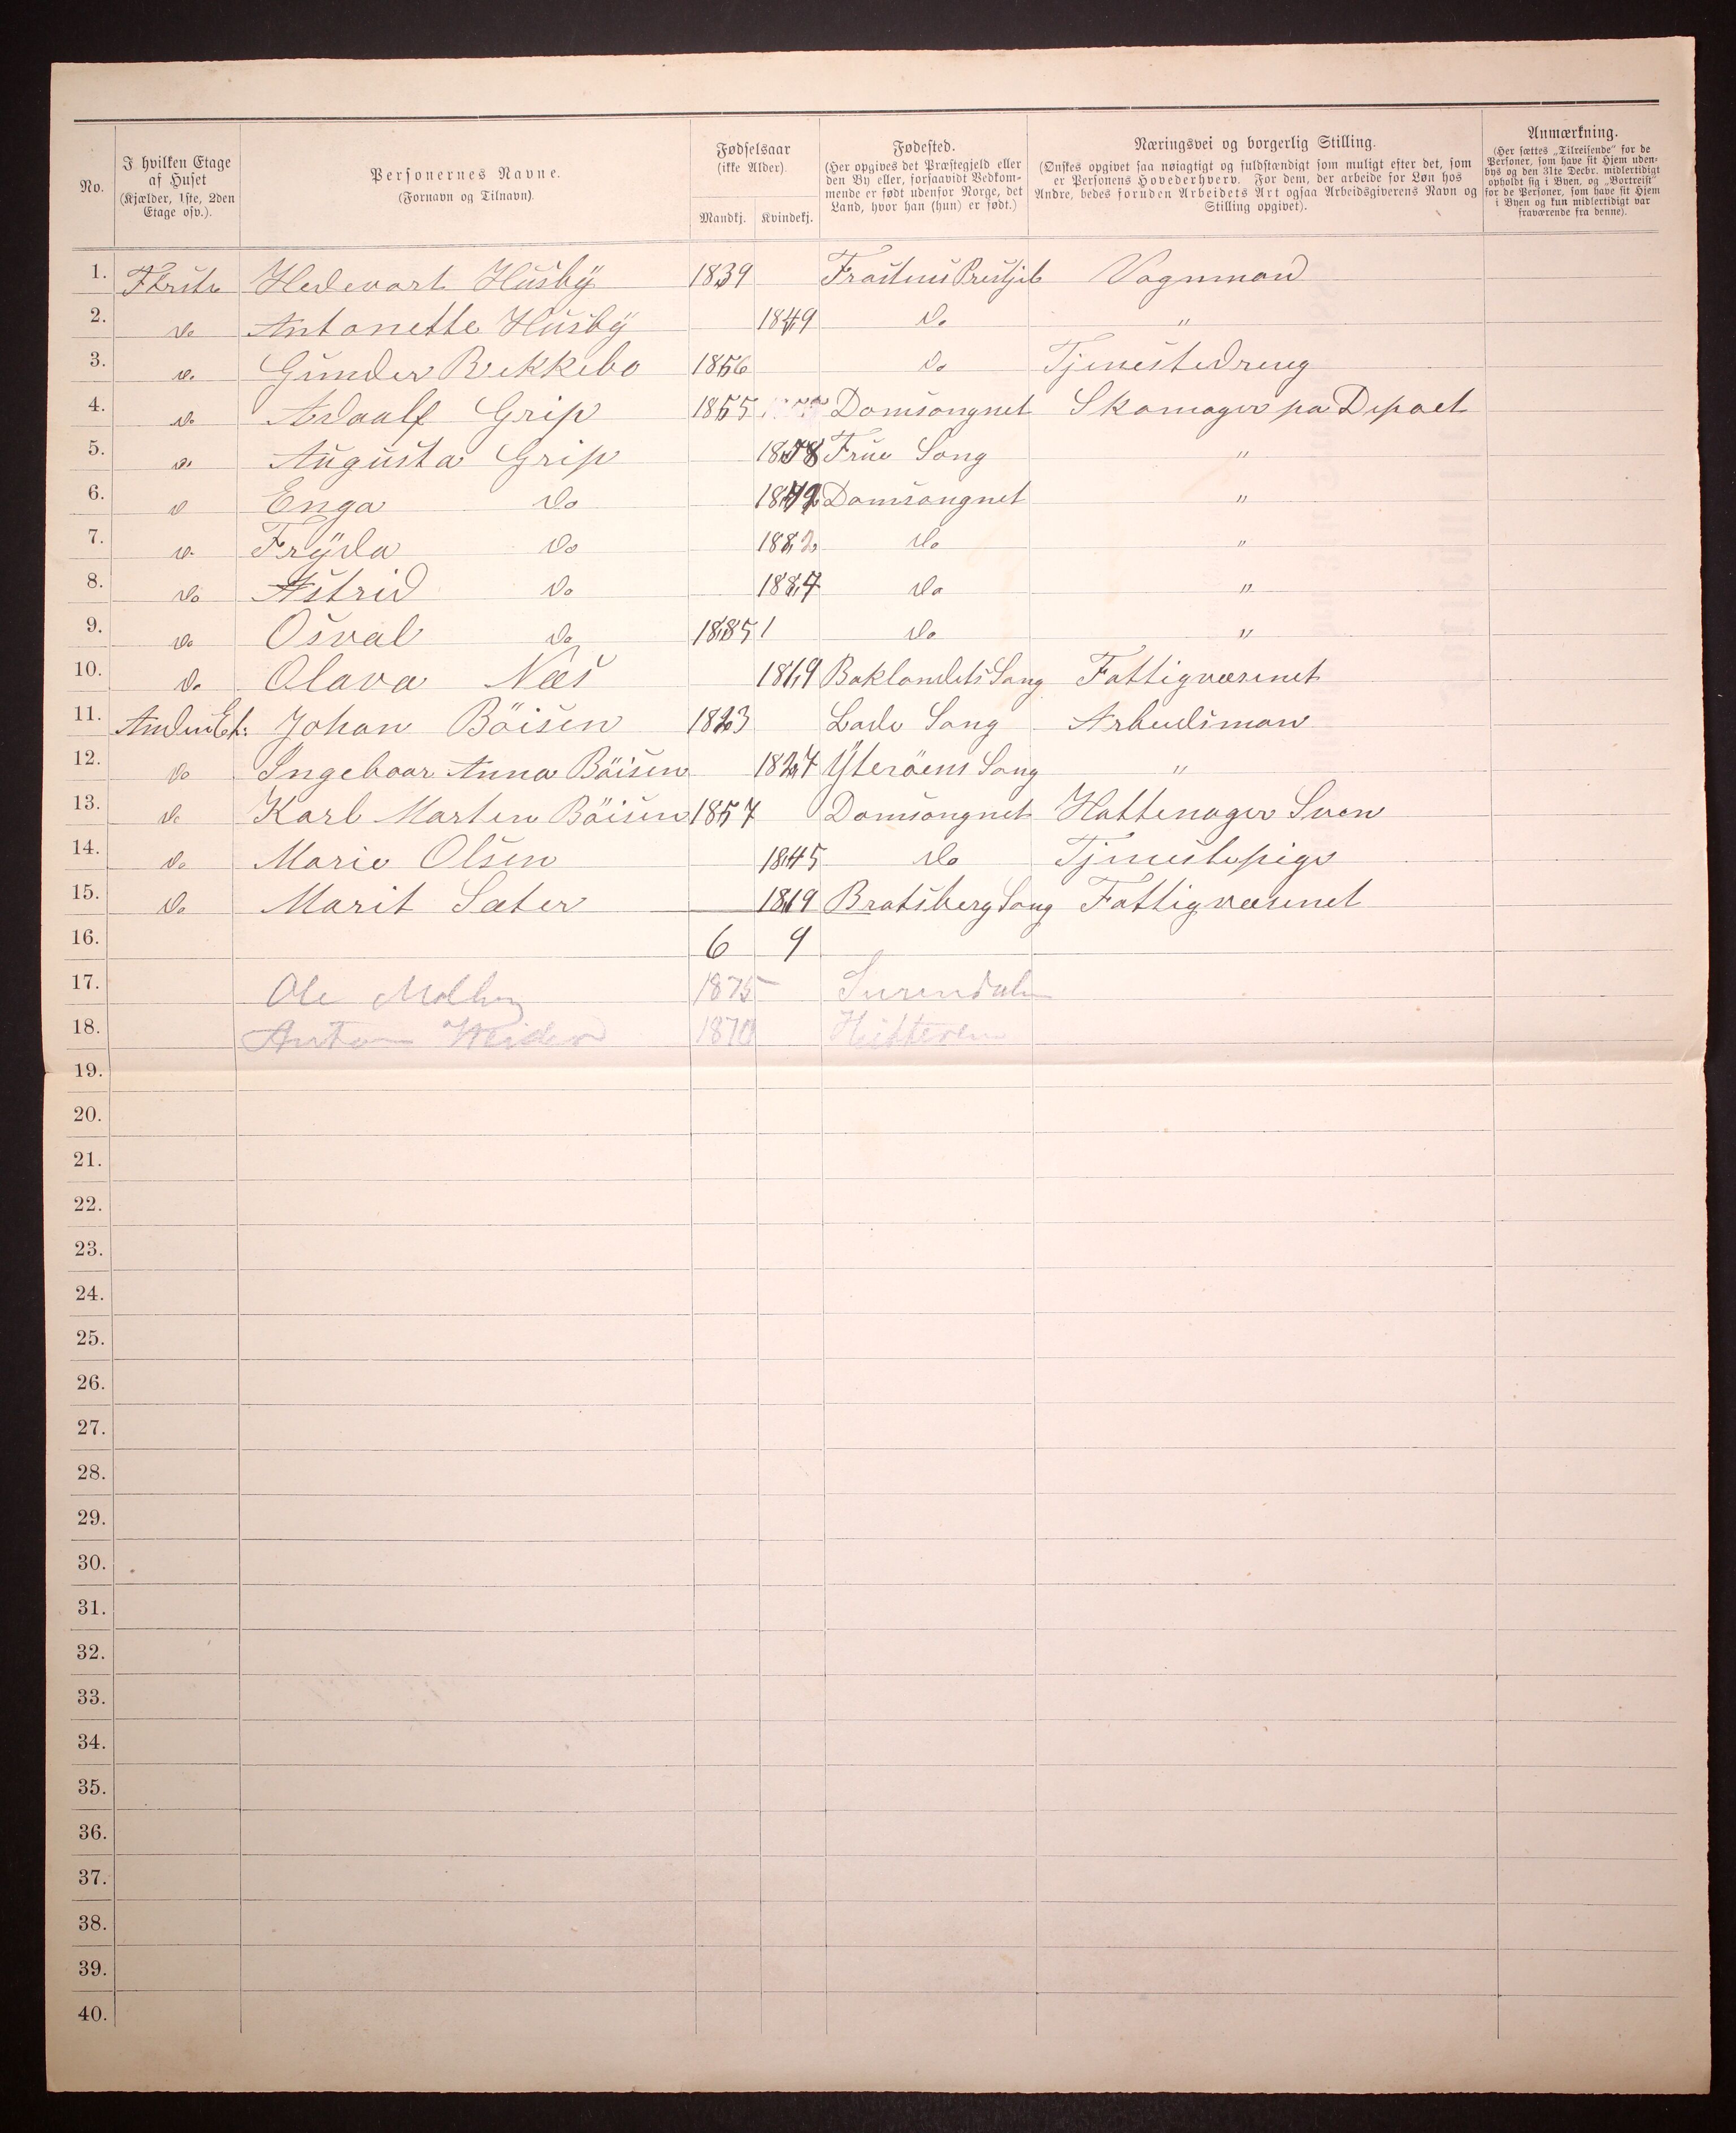 No.
I hvilken Etage af Huset (Kjælder, 1ste, 2den Etage osv.).
Personernes Navne. (Fornavn og Tilnavn).
Fødselsaar (ikke Alder).
Mandkj. Kvindekj.
Fødested. (Her opgives det Præstegjeld eller den By eller, forsaavidt Vedkommende er født udenfor Norge, det Land, hvor han (hun) er født.)
Næringsvei og borgerlig Stilling. (Ønskes opgivet saa nøiagtigt og fuldstændigt som muligt efter det, som er Personens Hovederhverv. For dem, der arbeide for Løn hos Andre, bedes foruden Arbeidets Art ogsaa Arbeidsgiverens Navn og Stilling opgivet).
Anmærkning. (Her sættes „Tilreisende" for de Personer, som have sit Hjem udenbys og den 31te Decbr. midlertidigt opholdt sig i Byen, og „Bortreist" for de Personer, som have sit Hjem i Byen og kun midlertidigt var fraværende fra denne).
1. Hedevart Husby 1839 Vognmand
2. do Antonette Husby 1849 do "
3. do Gunder Bekkebo 1856 do Tjenestedreng
4. do Adaalf Grip 1855 Domsongnet Skomager pa Depoet
5. do Augusta Grip 1858 Frue Song "
6. do Enga do Domsongnet "
7. do Fryda do 1882 do "
8. do Astrid do 1887 do "
9. do Osval do 1885 do "
10. do Olava Næs 1819 Baklandets Song Fattigvæsenet
11. Anden Et: Johan Böisen 1823 Lade Song Arbeidsman
12. do Ingeboar Anna Böisen 1824 Yteröens Song "
13. do Karl Marten Böisen 1857 Domsongnet Hattemager Sven
14. do Marie Olsen 1845 do Tjenestepige
15. do Marit Sæter 1819 Bratsberg Song Fattigvæsenet
16. 6 9
17. Ole 1875 Surendalen
18. Anton 1870 Hitteren
19.
20.
21.
22.
23.
24.
25.
26.
27.
28.
29.
30.
31.
32.
33.
34.
35.
36.
37.
38.
39.
40.